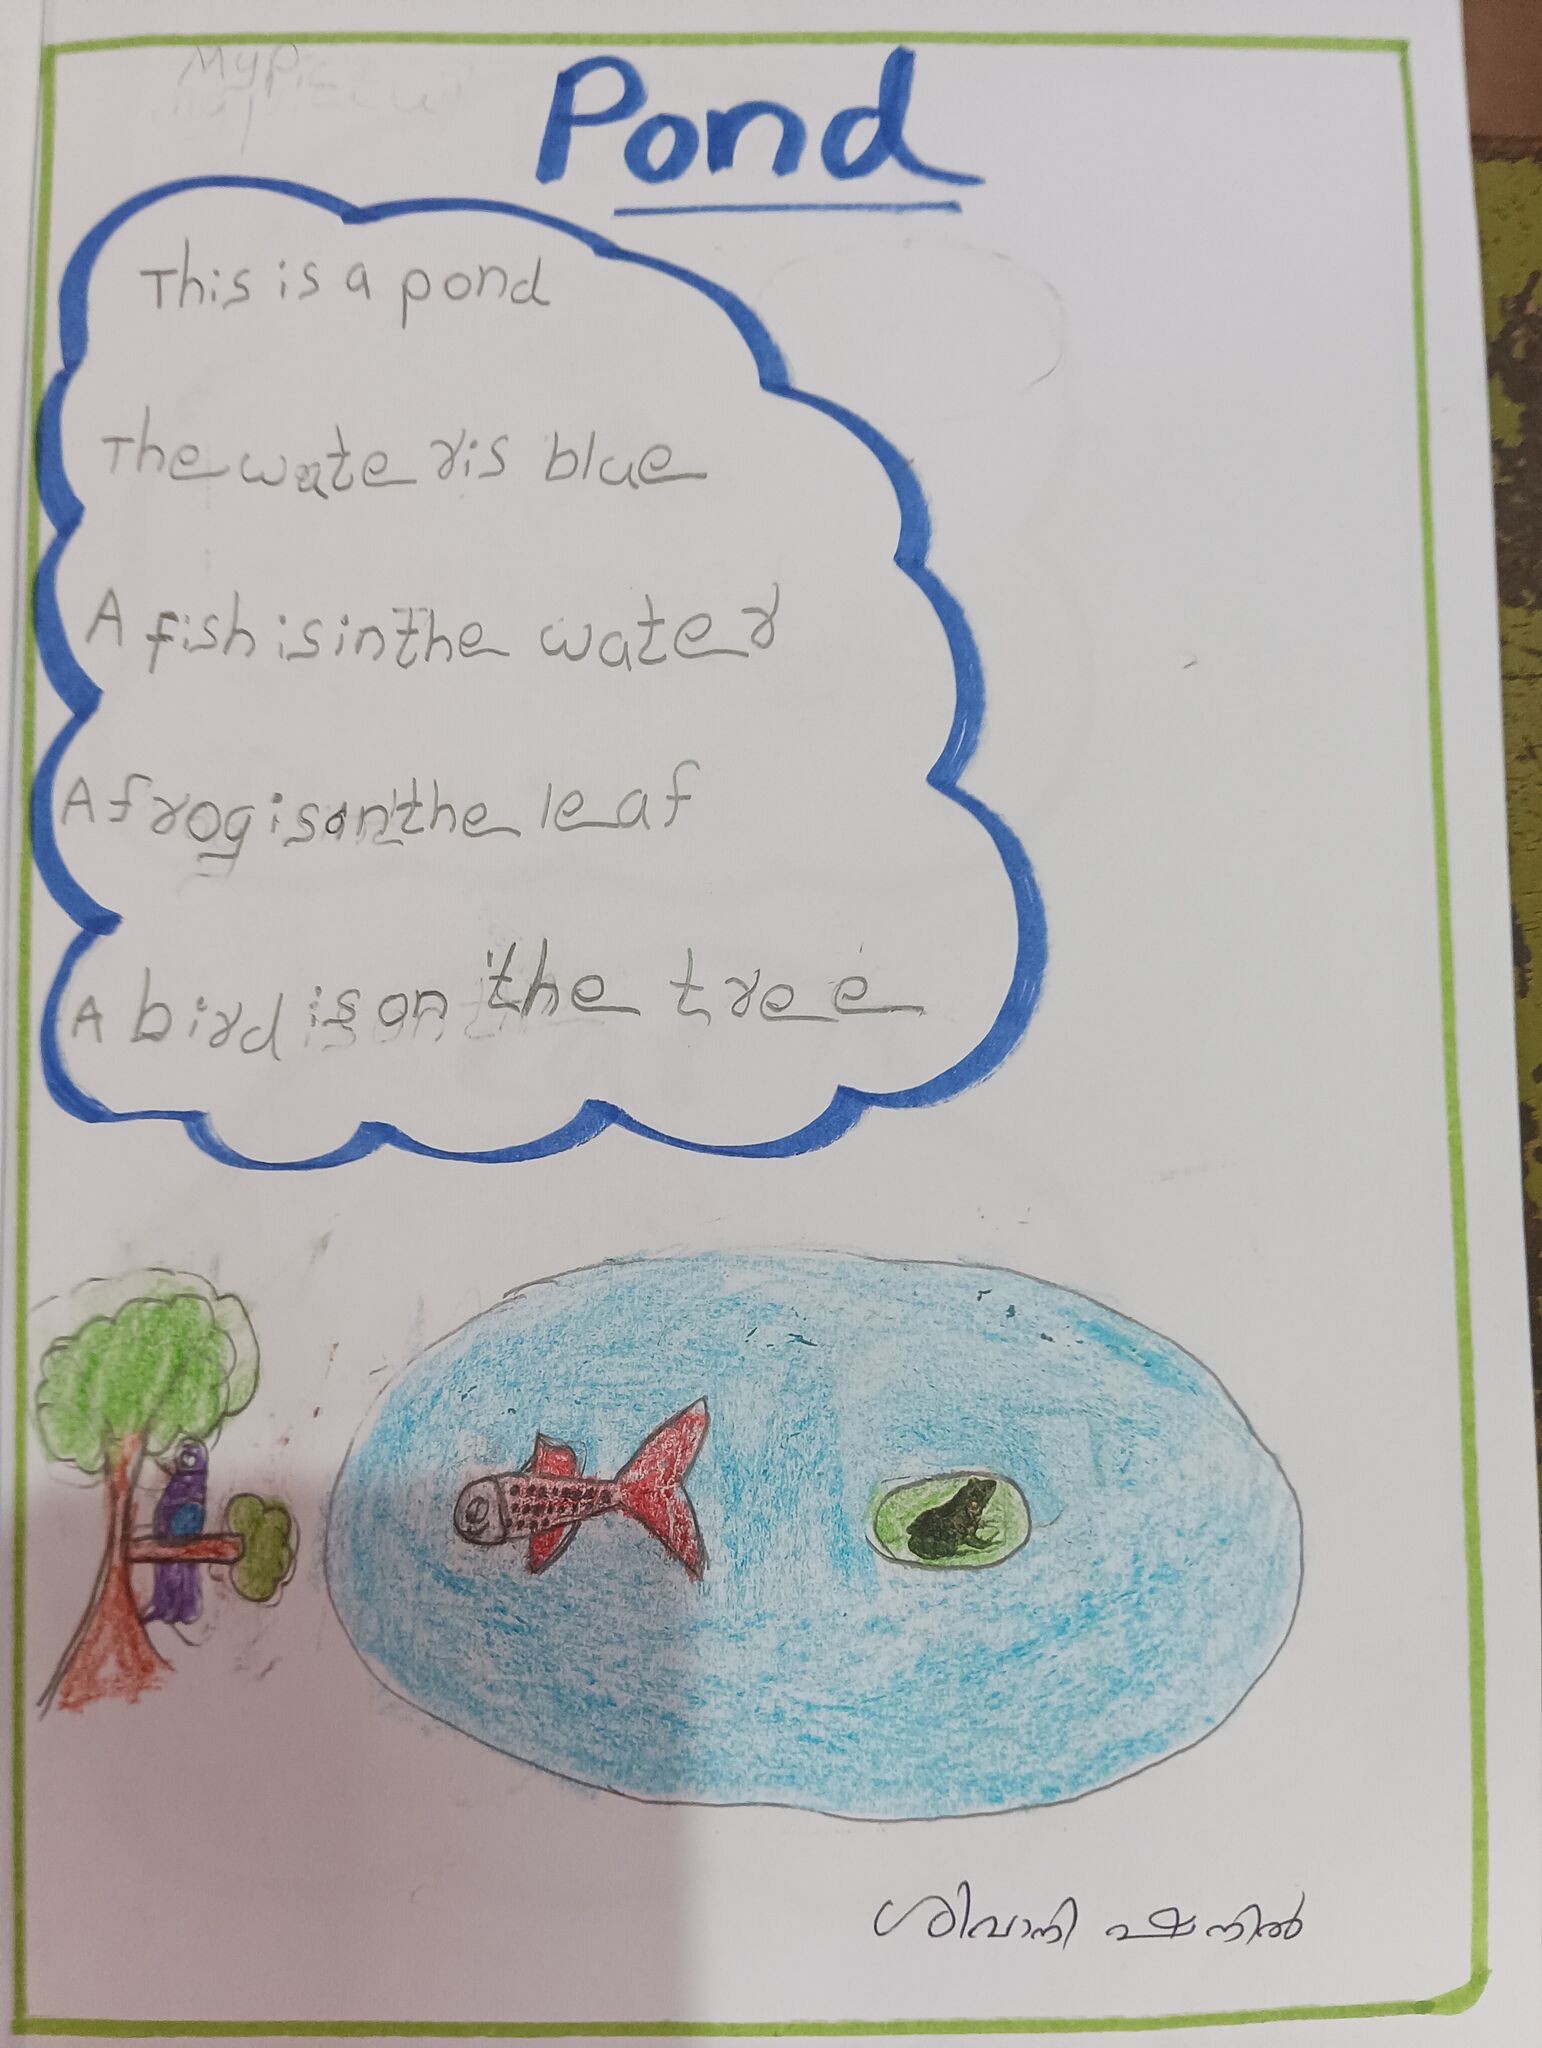 Pond
This is a pond
The water is blue
A fish is in the water
A frog is on the leaf
A bird is on the tree
ശിവാനി ഷനിൽ